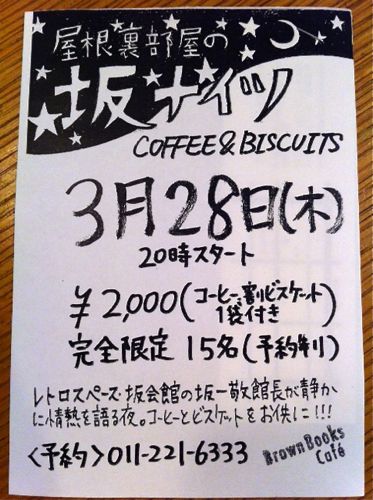 屋根裏部屋の
坂ナイツ
COFFEE & BISCUITS
3月28日(木)
20時スタート
¥2,000(コーヒー、割りビスケット
1袋付き)
完全限定 15名(予約制)
レトロスペース・坂会館の坂一敬館長が静か
に情熱を語る夜。コーヒーとビスケットをお供に!!!
〈予約〉011-221-6333
Brown Books
Café